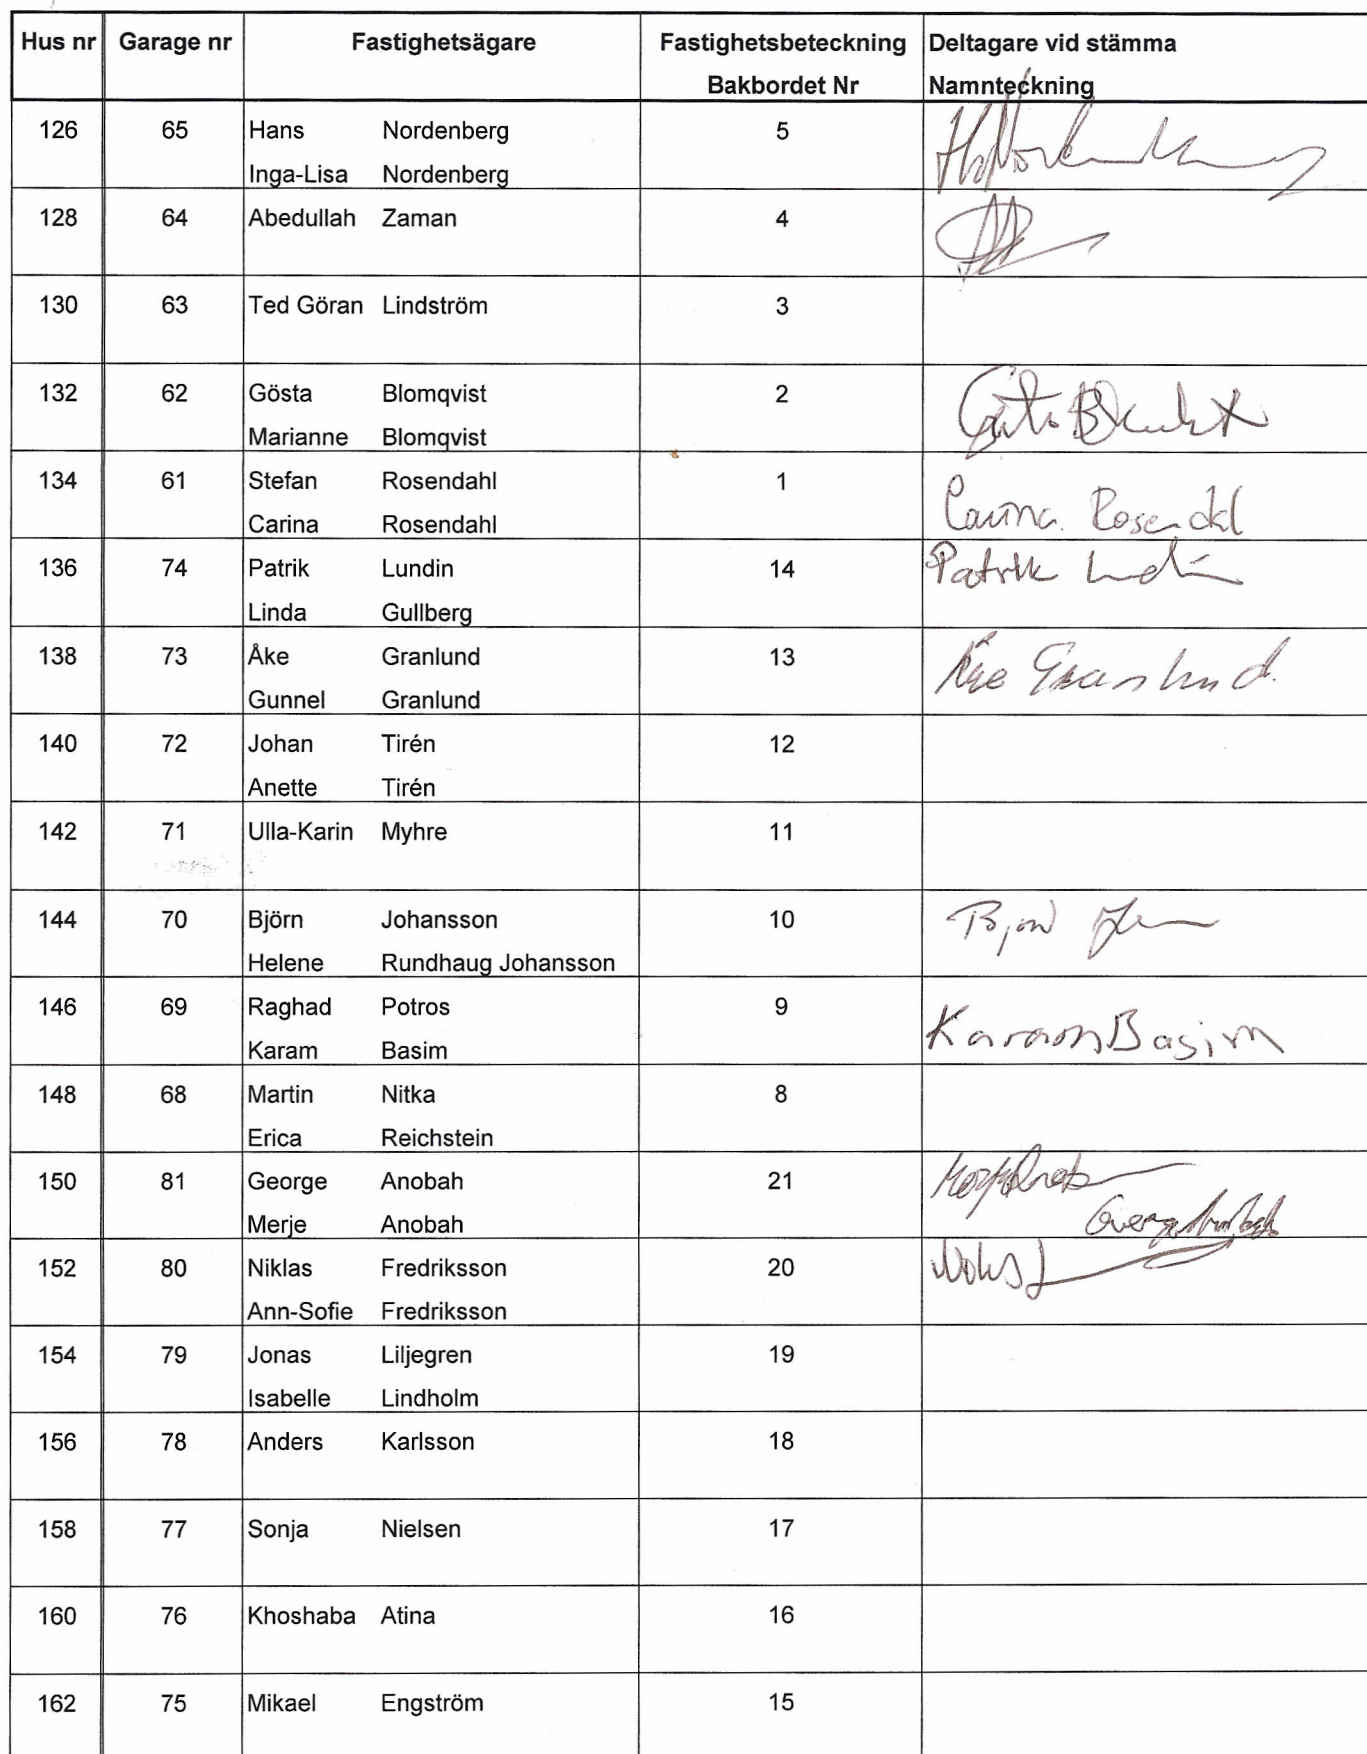 Hus nr Garage nr Fastighetsägare Fastighetsbeteckning Deltagare vid stämma
Bakbordet Nr Namnteckning
126 65 Hans Nordenberg 5
Inga-Lisa Nordenberg
128 64 Abedullah Zaman 4
130 63 Ted Göran Lindström 3
132 62 Gösta Blomqvist 2
Marianne Blomqvist
134 61 Stefan Rosendahl 1
Carina Rosendahl Carina Rosendal
136 74 Patrik Lundin 14 Patrik Lundin
Linda Gullberg
138 73 Åke Granlund 13 Åke Granlund
Gunnel Granlund
140 72 Johan Tirén 12
Anette Tirén
142 71 Ulla-Karin Myhre 11
144 70 Björn Johansson 10 Björn
Helene Rundhaug Johansson
146 69 Raghad Potros 9 Karam Basim
Karam Basim
148 68 Martin Nitka 8
Erica Reichstein
150 81 George Anobah 21
Merje Anobah George Anobah
152 80 Niklas Fredriksson 20
Ann-Sofie Fredriksson
154 79 Jonas Liljegren 19
Isabelle Lindholm
156 78 Anders Karlsson 18
158 77 Sonja Nielsen 17
160 76 Khoshaba Atina 16
162 75 Mikael Engström 15